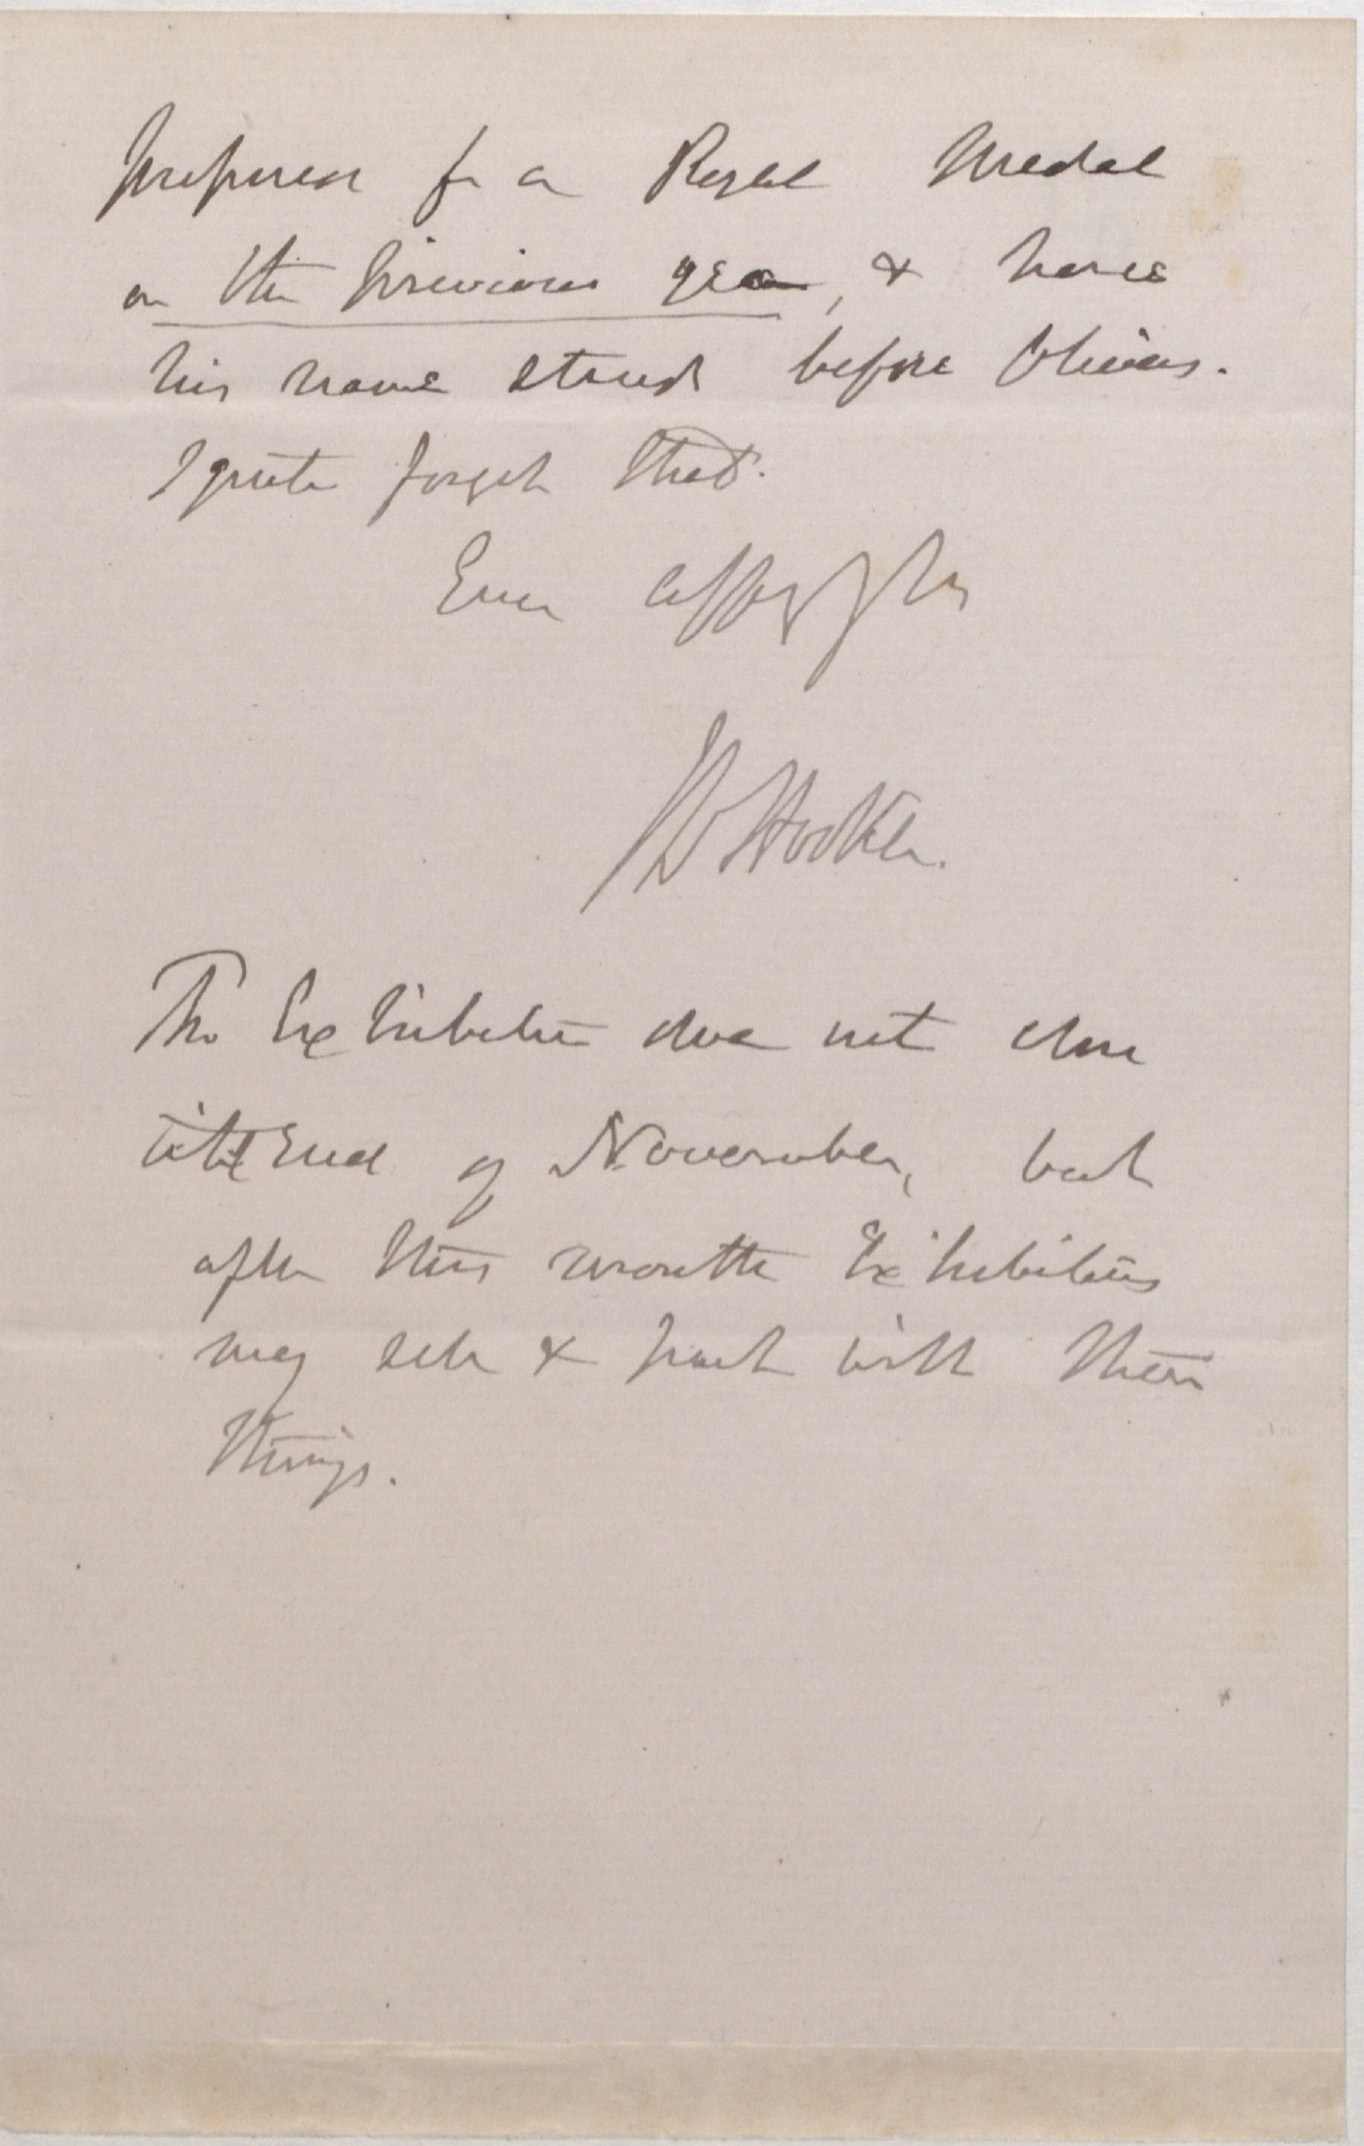 proposed for a Royal Medal
on the previous year, & hence
his name stood before Olivers.
I quite forget that.
Ever affy yrs
J D Hooker.
The Exhibition does not close
till End of November, but
after this month Exhibitors
may sell & part with their
things.